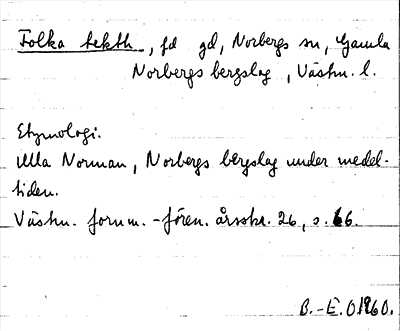 Folka tekth, fd gd, Norbergs sn, Gamla
Norbergs bergslag, Västm. l.
Etymologi.
Ulla Norman, Norbergs bergslag under medel-
tiden.
Västm. fornm.-fören. årsskr. 26, s. 66.
B.-E. O 1960.